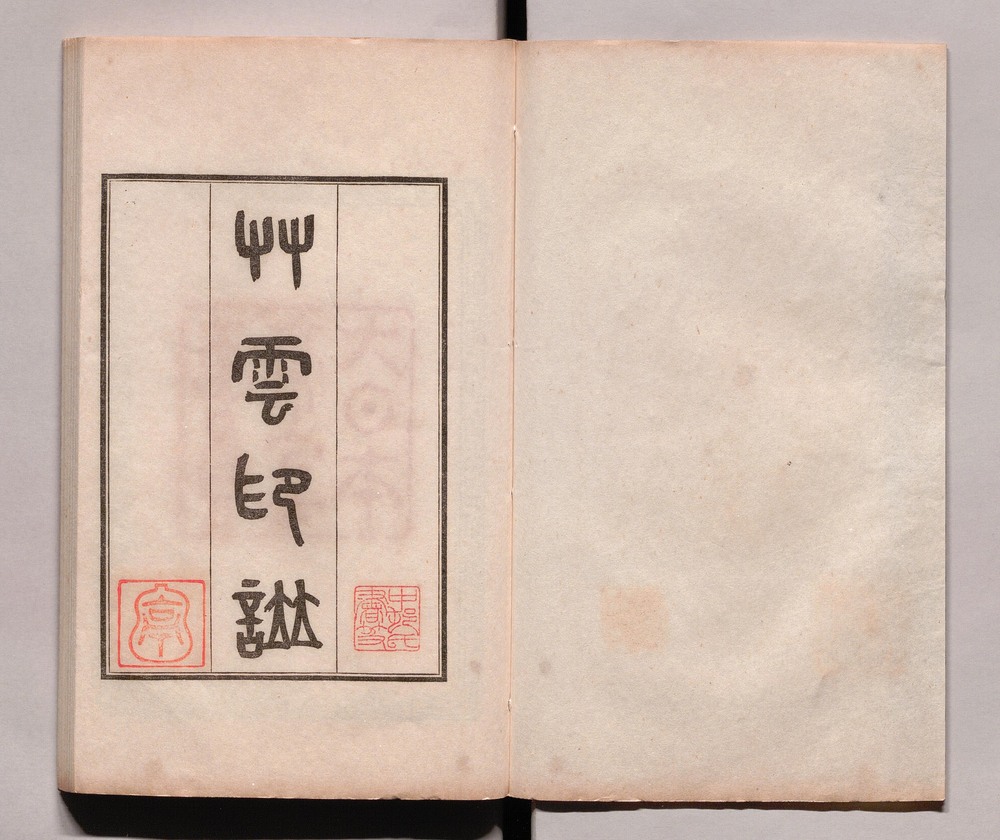 艸雲印譜